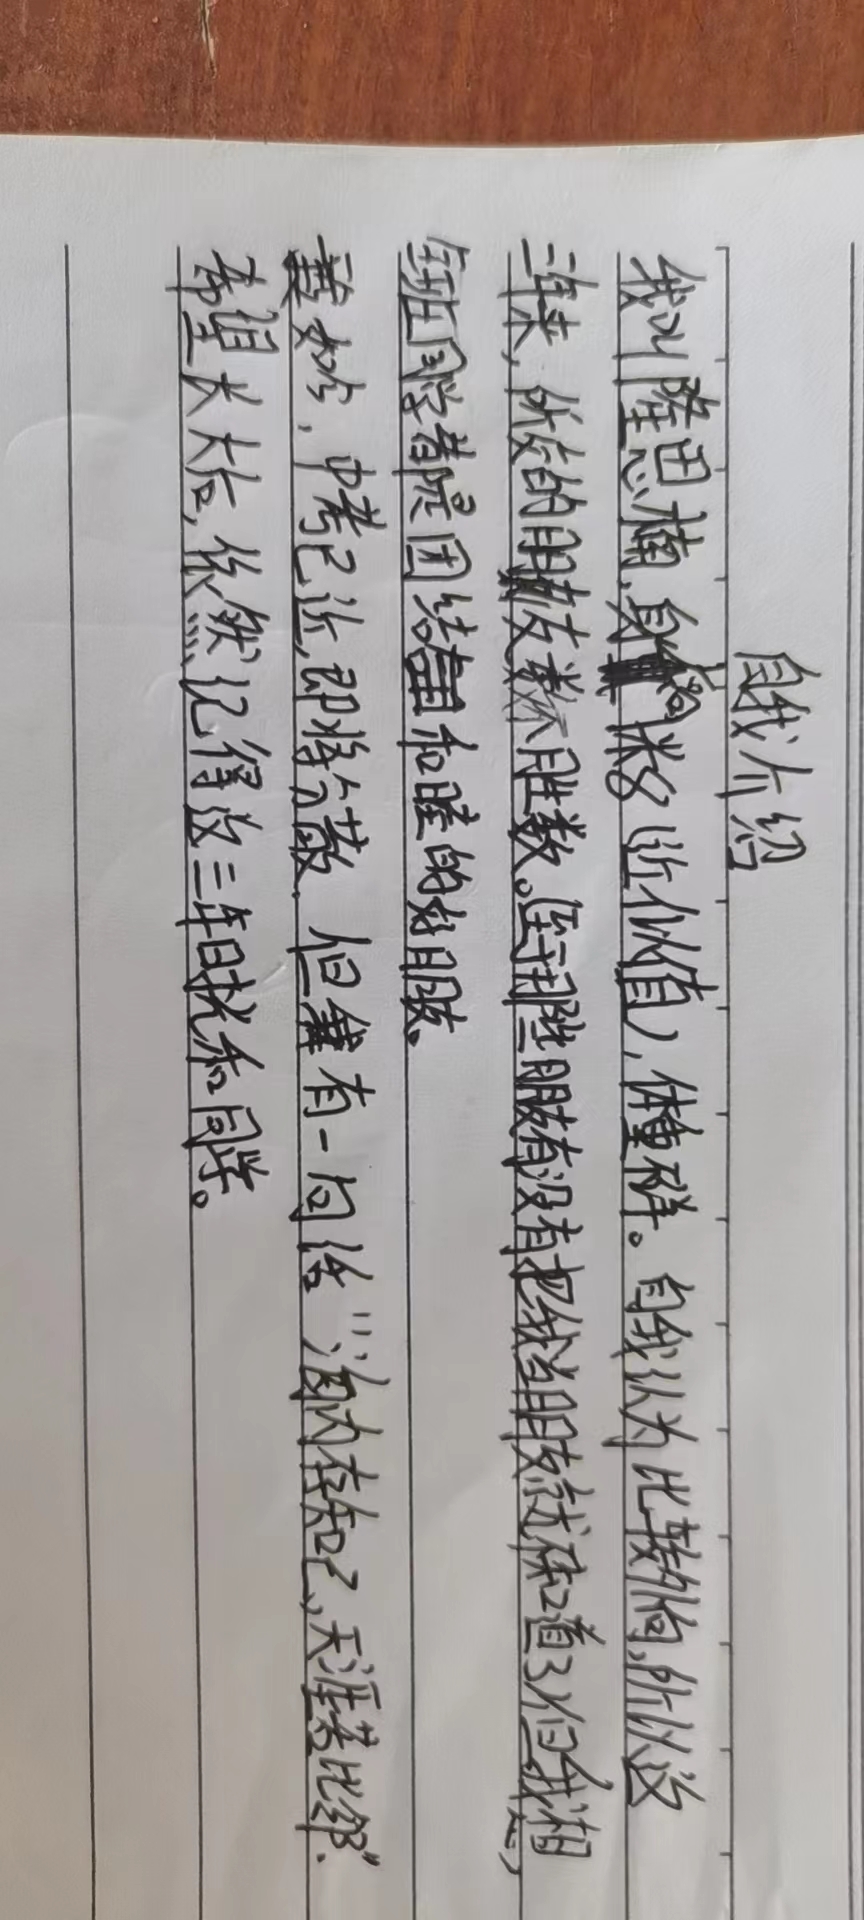 自我介绍
我叫隆思楠,身高1米8(近似值),体重保密。自我认为比较外向,所以这
三年来,所交的朋友数不胜数。至于那些朋友有没有把我当朋友就不知道了,但我相
全班同学都是团结和睦的好朋友。
然如今,中考已近,即将分散。但我有一句话:“海内存知己,天涯若比邻”。
希望长大后,依然记得这三年时光和同学。